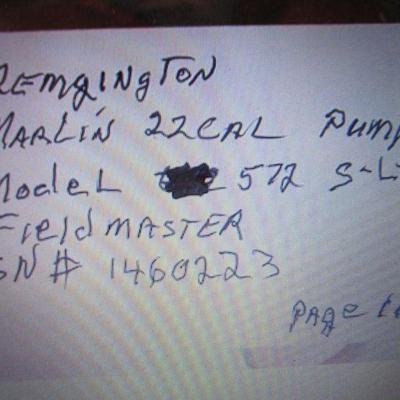 REMGINGTON
MARLIN 22CAL PUMP
MODEL 572 S-L
FieldMASTER
SN# 1460223
PAge